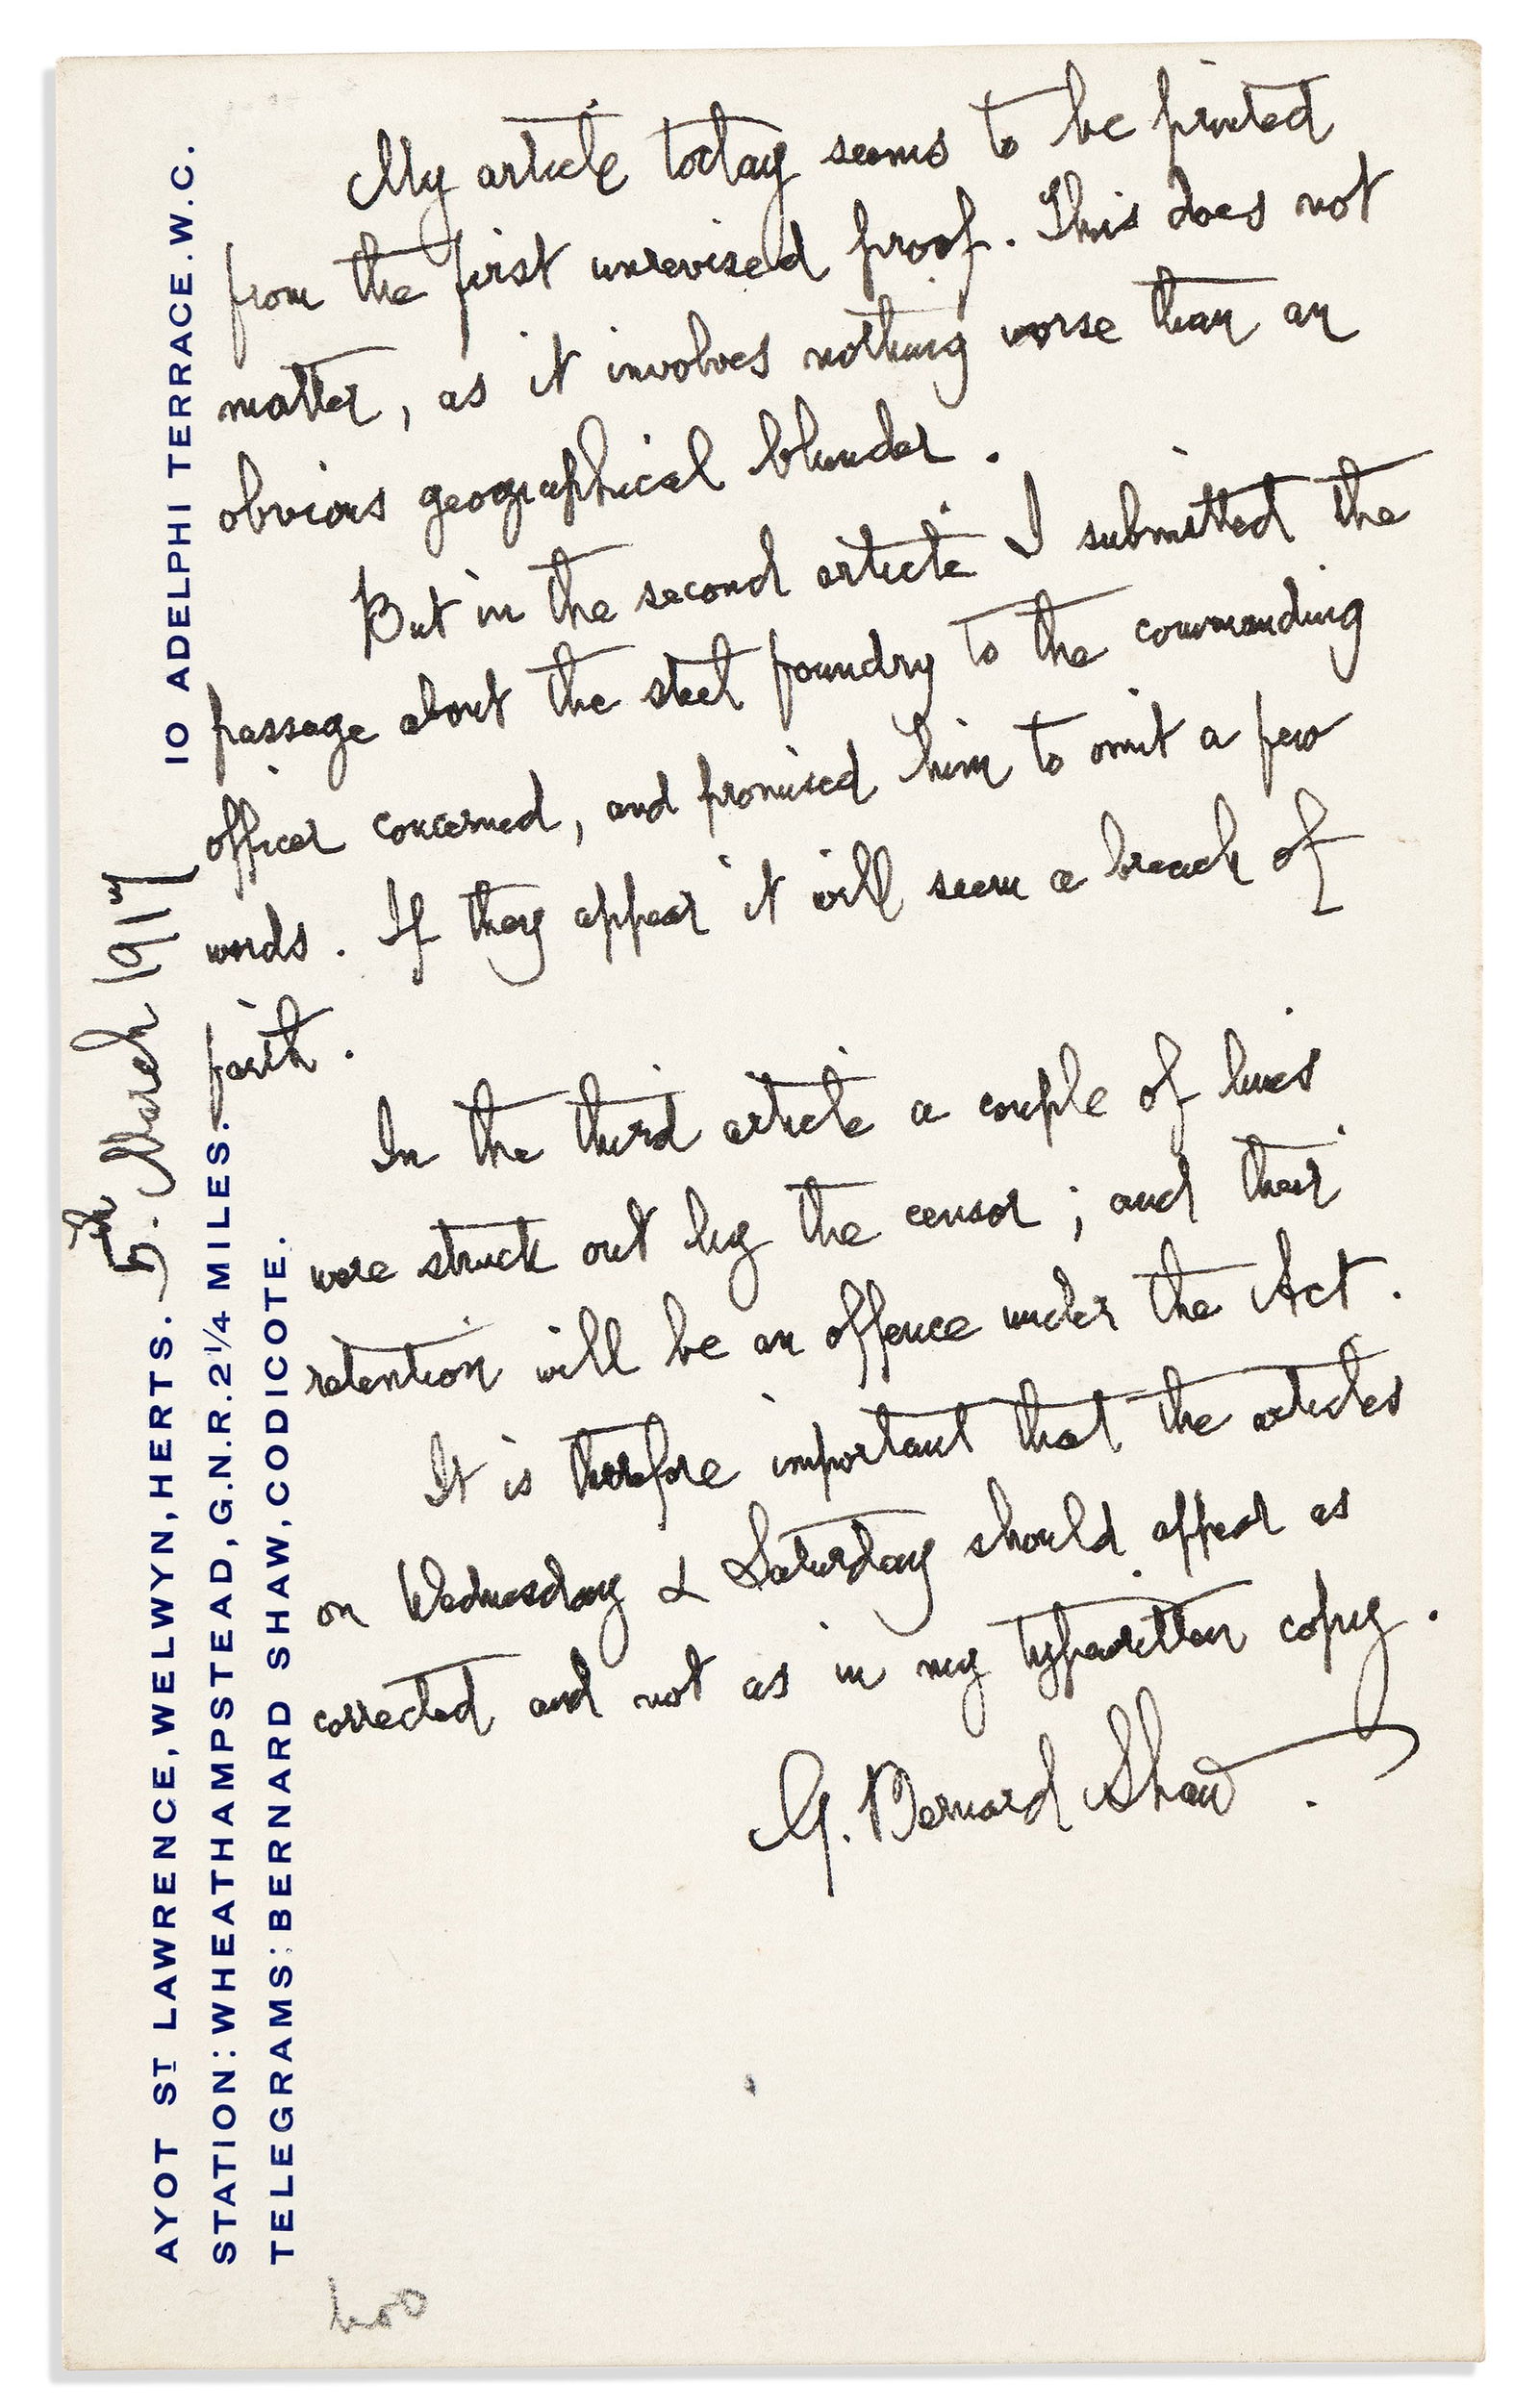 AYOT ST LAWRENCE, WELWYN, HERTS.
STATION: WHEATHAMPSTEAD, G.N.R. 2 1/4 MILES.
TELEGRAMS: BERNARD SHAW, CODICOTE.
10 ADELPHI TERRACE. W.C.
5th. March 1917
My article today seems to be printed
from the first unrevised proof. This does not
matter, as it involves nothing worse than an
obvious geographical blunder.
But in the second article I submitted the
passage about the steel foundry to the commanding
officer concerned, and promised him to omit a few
words. If they appear it will seem a breach of
faith.
In the third article a couple of lines
were struck out by the censor; and their
retention will be an offence under the Act.
It is therefore important that the articles
on Wednesday & Saturday should appear as
corrected and not as in my typewritten copy.
G. Bernard Shaw